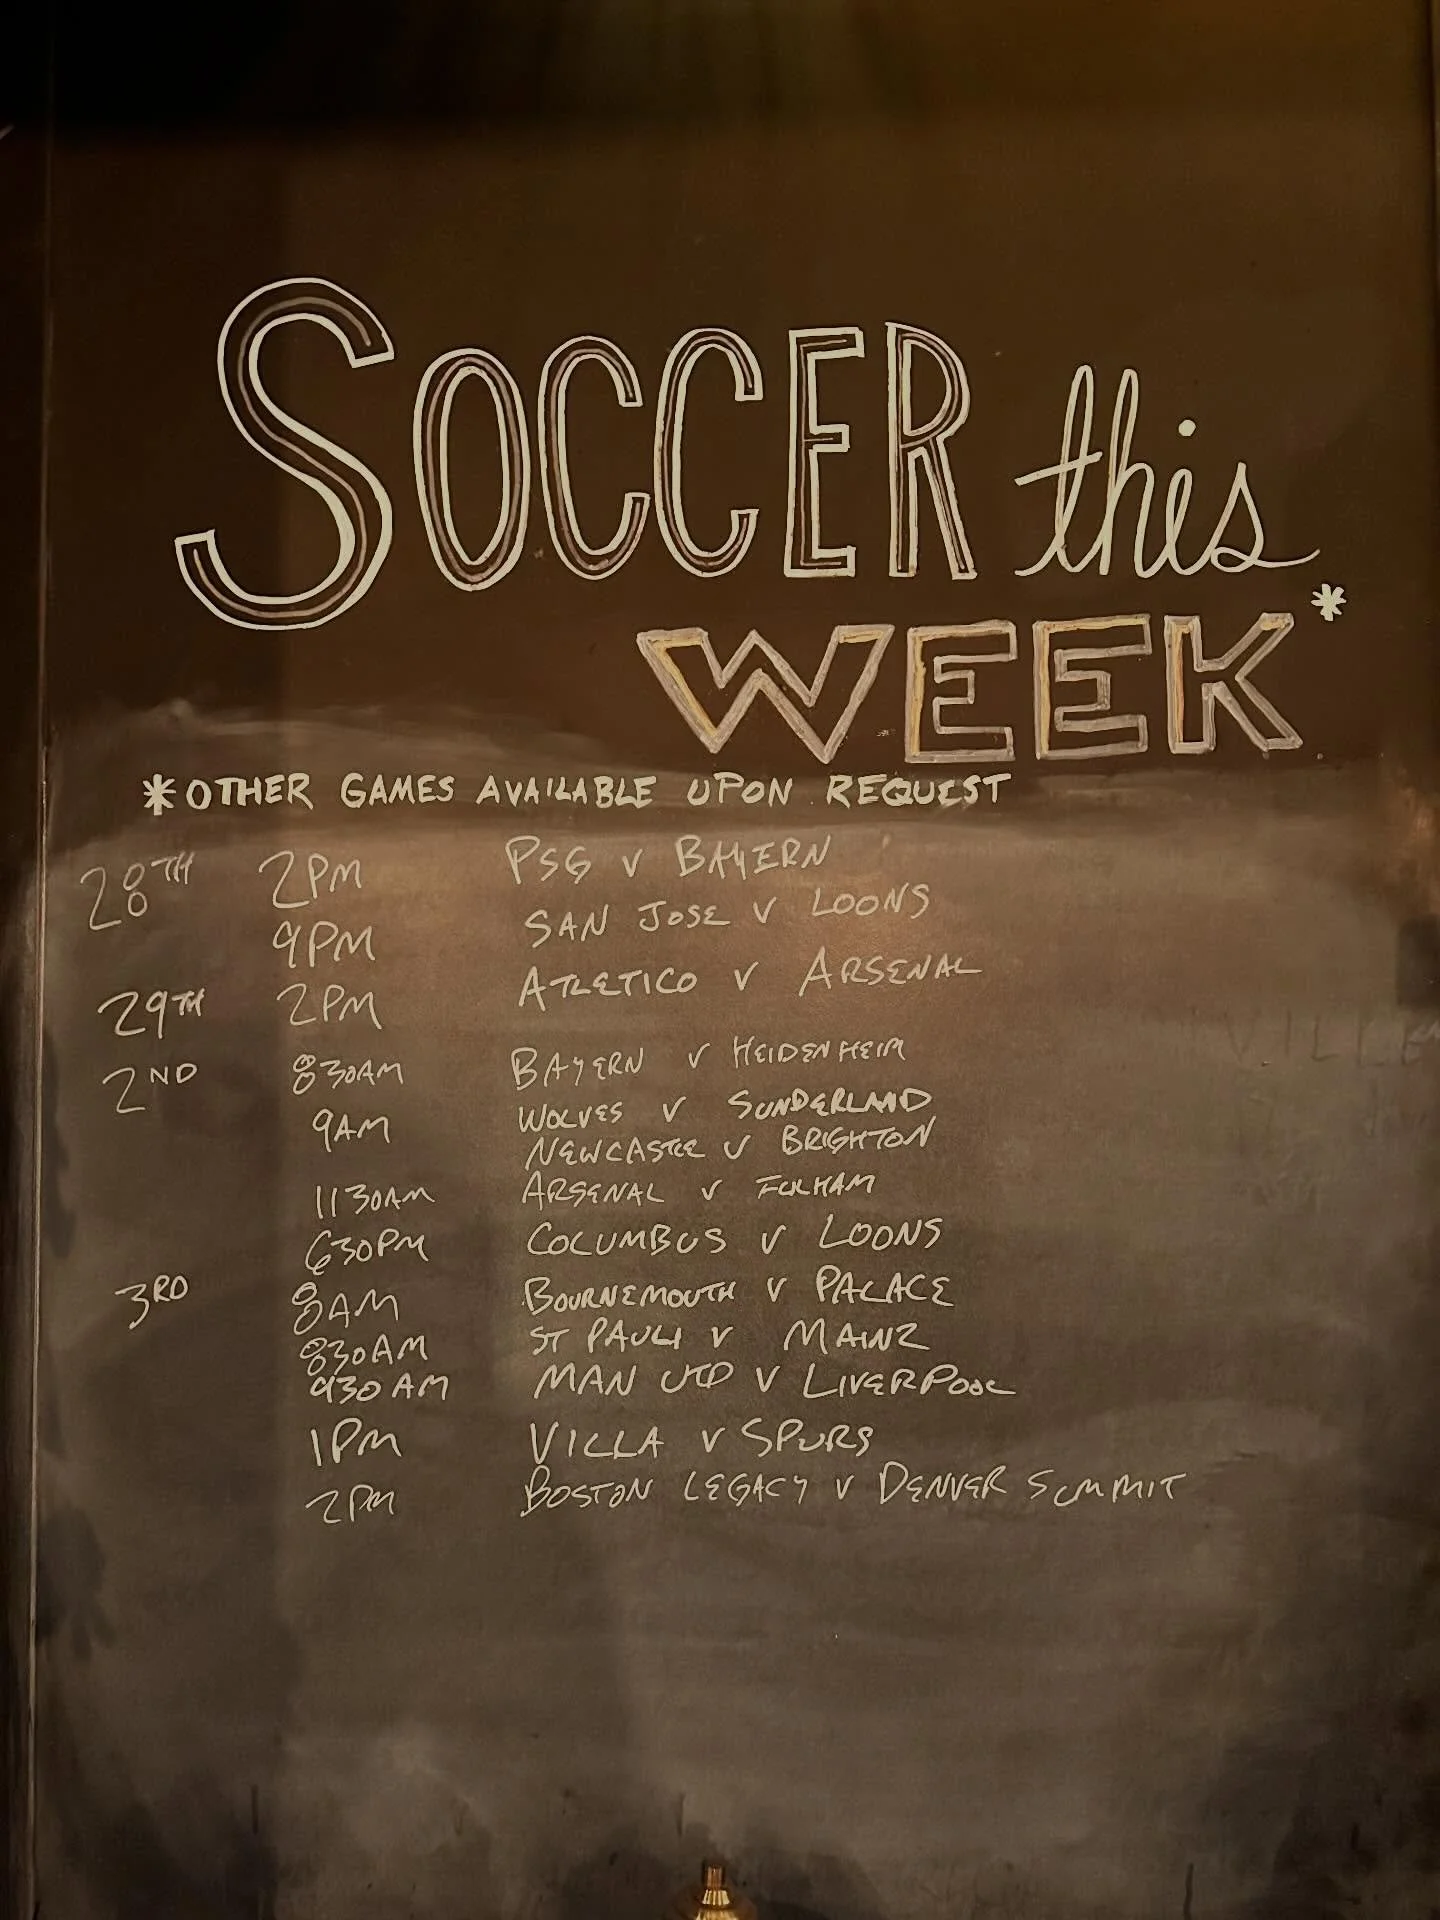 SOCCER this
WEEK*
*OTHER GAMES AVAILABLE UPON REQUEST
28TH 2PM PSG V BAYERN
9PM SAN JOSE V LOONS
29TH 2PM ATLETICO V ARSENAL
2ND 830AM BAYERN V HEIDENHEIM
9AM WOLVES V SUNDERLAND
NEWCASTLE V BRIGHTON
1130AM ARSENAL V FULHAM
630PM COLUMBUS V LOONS
3RD 8AM BOURNEMOUTH V PALACE
830AM ST PAULI V MAINZ
930AM MAN UTD V LIVERPOOL
1PM VILLA V SPURS
2PM BOSTON LEGACY V DENVER SUMMIT